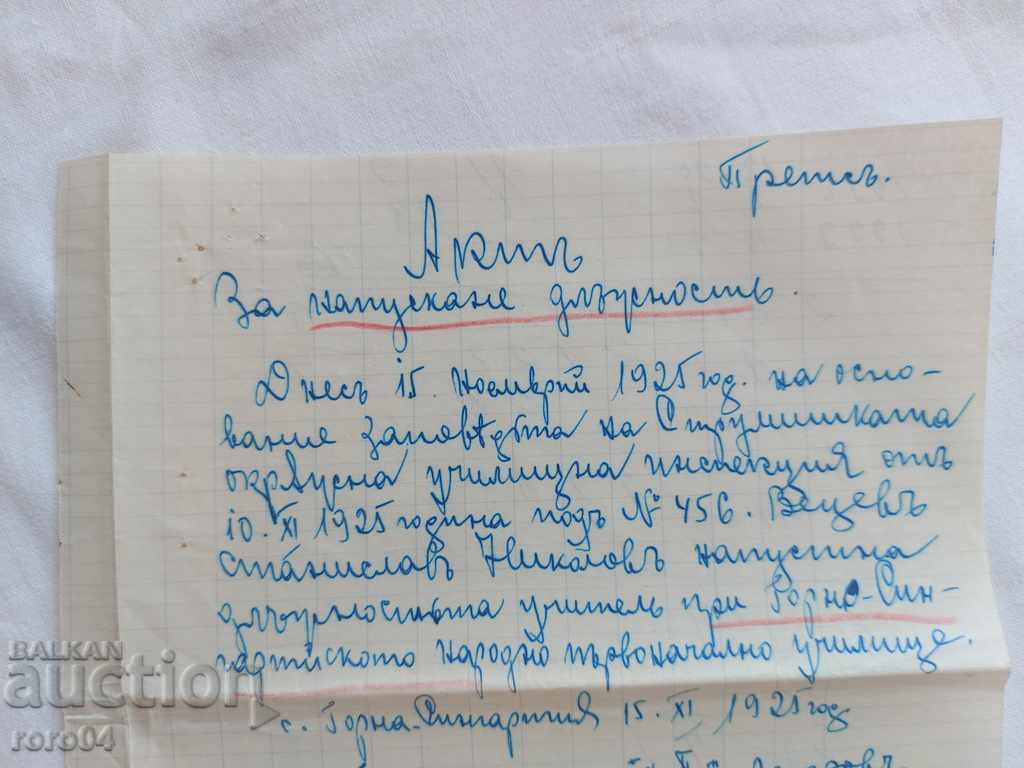 Преписъ.
Актъ
За напускане длъжность.
Днесъ 15. ноемврий 1925 год. на осно-
вание заповѣдьта на Струмишката
окрѫжна училищна инспекция отъ
10. XI 1925 година подъ № 456. Вецевъ
Станиславъ Николовъ напустна
длъжностьта учитель при Горно-Син-
гартийското народно първоначално училище.
с. Горна-Сингартия 15. XI 1925 год
BALKAN
auction
roro04